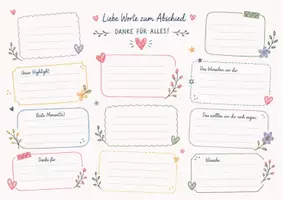 Liebe Worte zum Abschied
DANKE FÜR ALLES!
Unser Highlight!
Das Wünschen wir dir:
Beste Moment(e)
Das wollten wir dir noch sagen:
Danke für
Wünsche